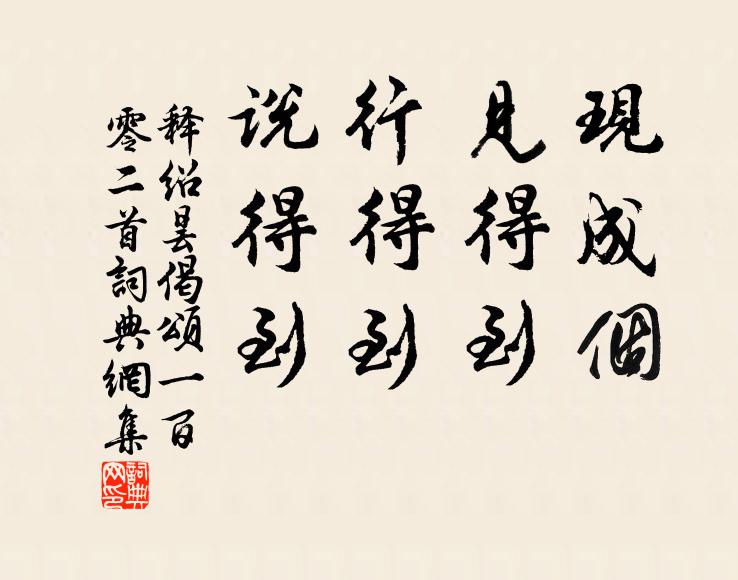 現成個
見得到
行得到
説得到
释绍昙偈頌一百
零二首詞典網集
詞典网印